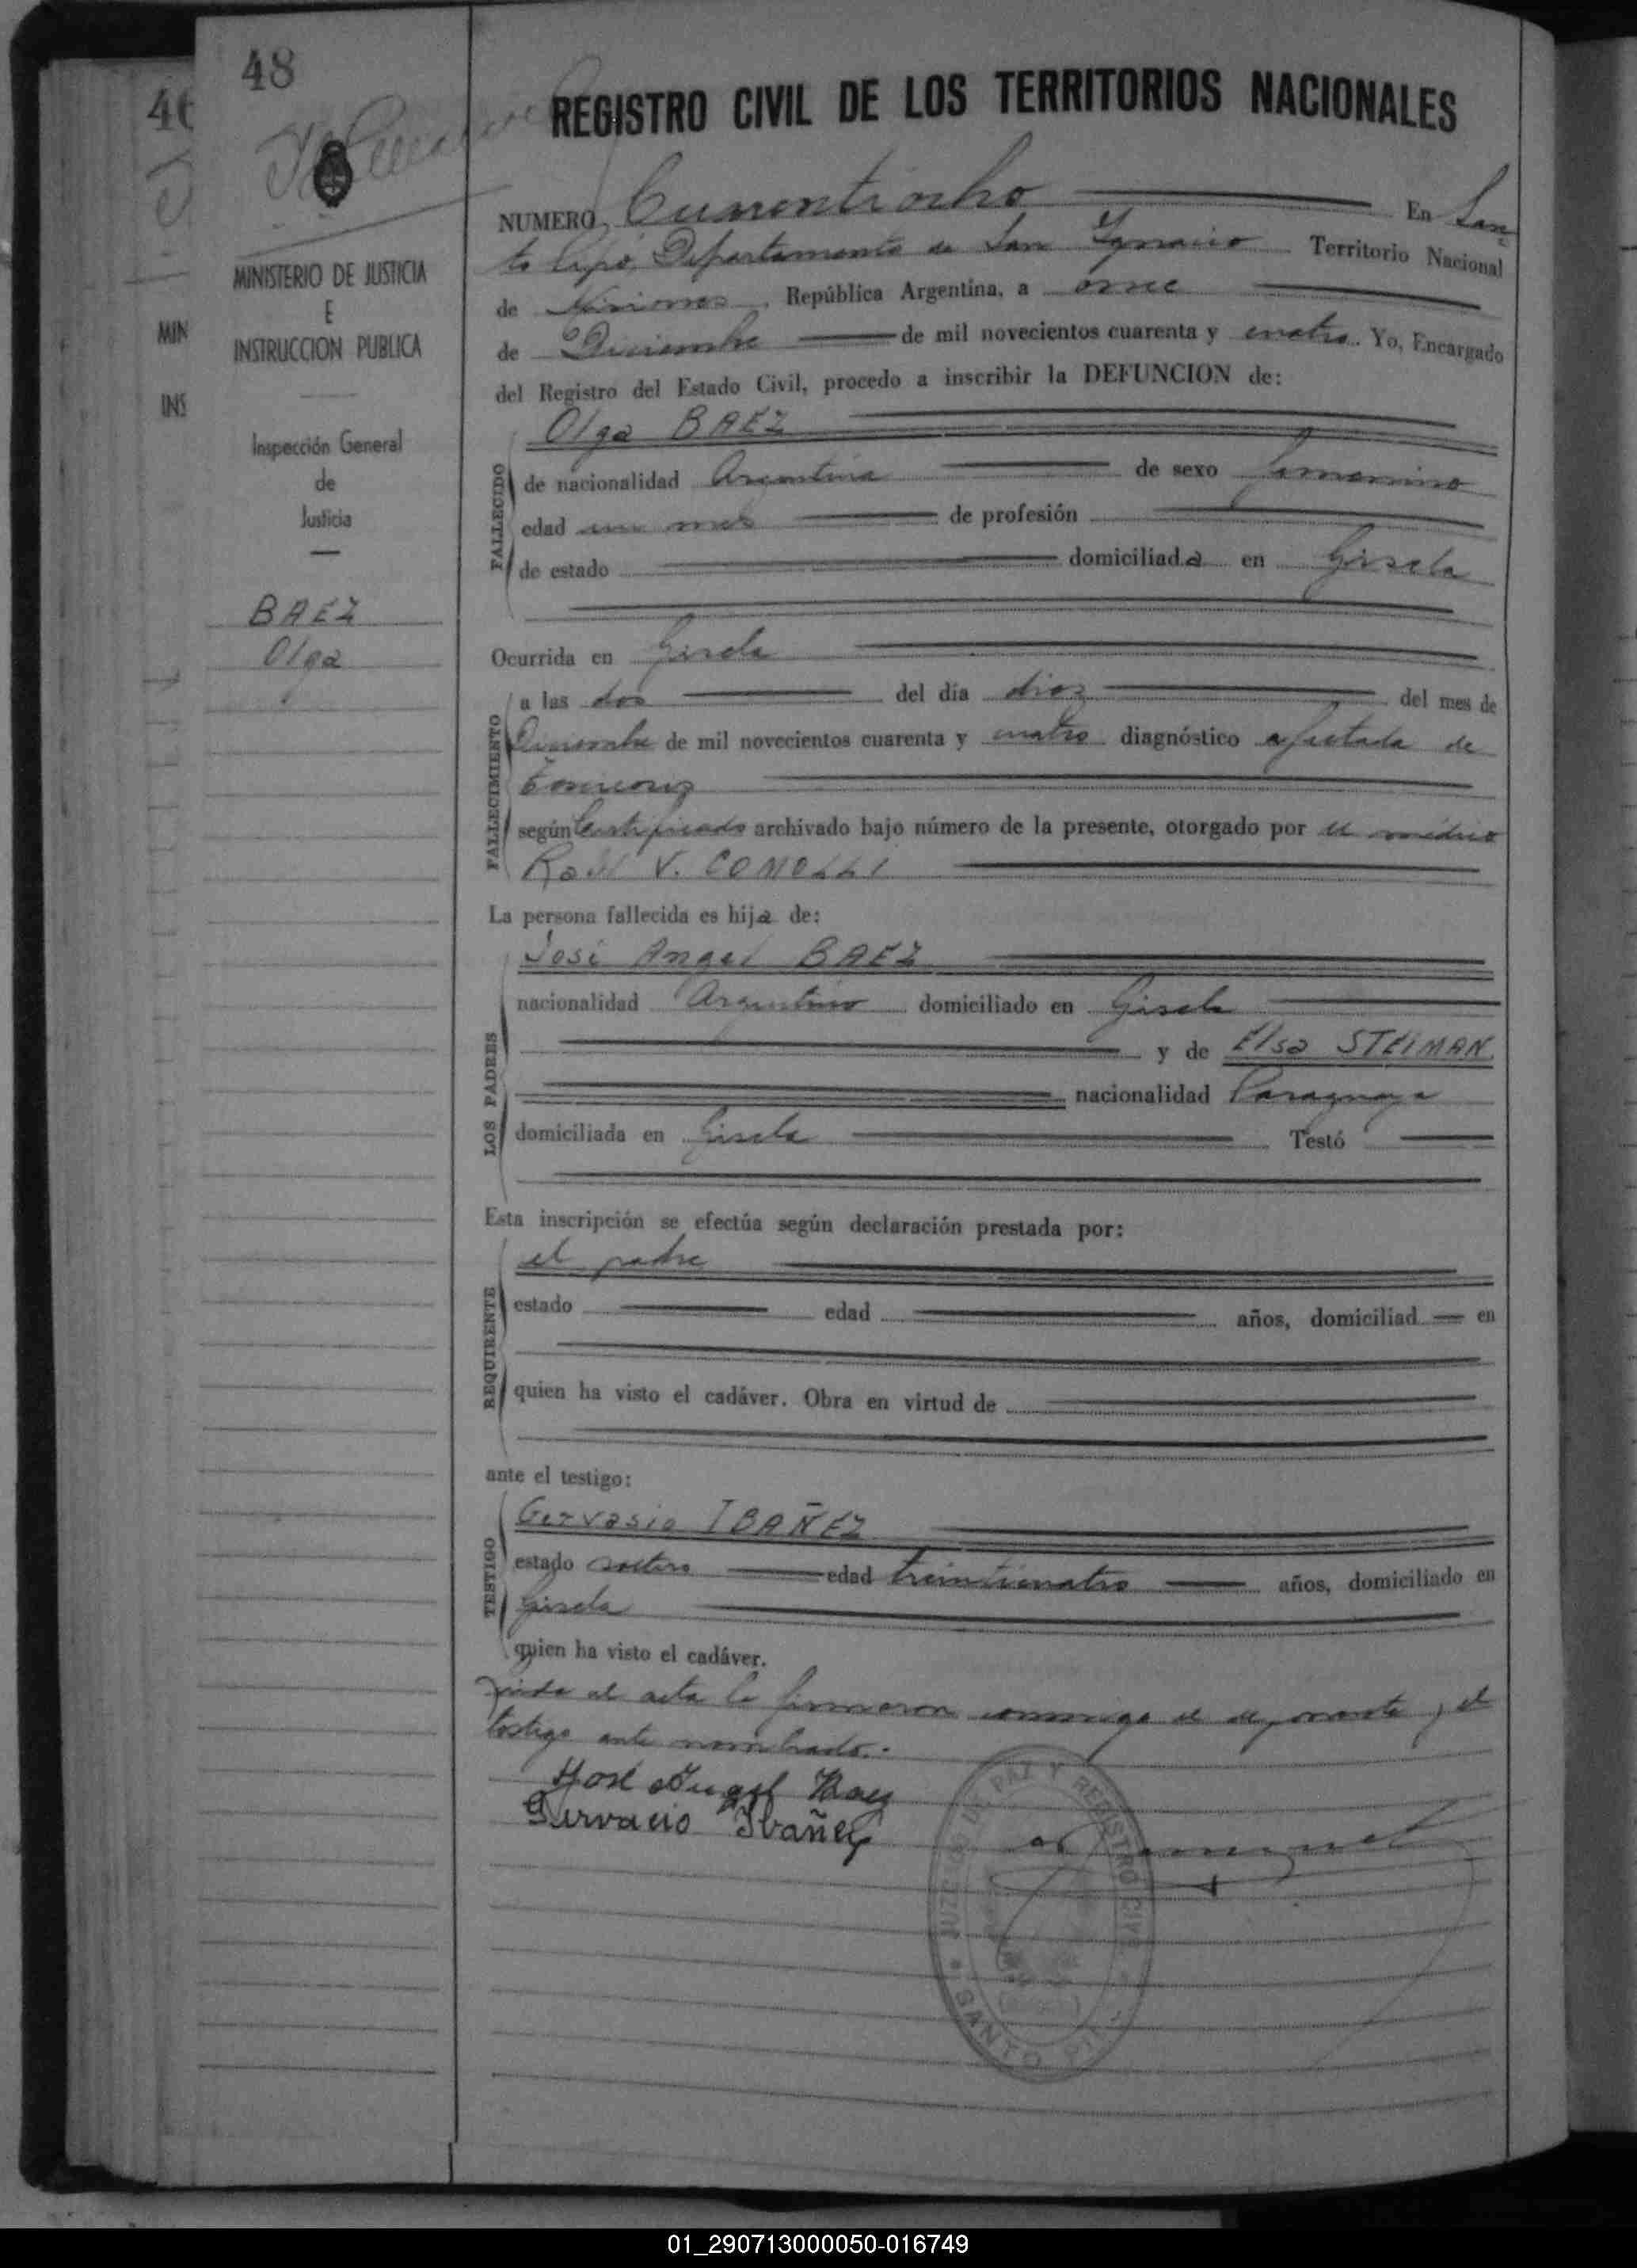 48
46
REGISTRO CIVIL DE LOS TERRITORIOS NACIONALES
MINISTERIO DE JUSTICIA
E
INSTRUCCION PUBLICA
Inspección General
de
Justicia
BAEZ
Olga
MIN
INS
NUMERO Cuarentiocho En San
to Pipó, Departamento de San Ignacio Territorio Nacional
de Misiones, República Argentina, a once
de Diciembre de mil novecientos cuarenta y cuatro. Yo, Encargado
del Registro del Estado Civil, procedo a inscribir la DEFUNCION de:
Olga BAEZ
FALLECIDO
de nacionalidad Argentina de sexo femenino
edad un mes de profesión
de estado domiciliada en Gisela
Ocurrida en Gisela
FALLECIMIENTO
a las dos del día diez del mes de
Diciembre de mil novecientos cuarenta y cuatro diagnóstico afectada de
según Certificado archivado bajo número de la presente, otorgado por el médico
Raúl V. COMOLLI
La persona fallecida es hija de:
LOS PADRES
José Angel BAEZ
nacionalidad Argentino domiciliado en Gisela
y de Elsa STEIMAN
nacionalidad Paraguaya
domiciliada en Gisela Testó
Esta inscripción se efectúa según declaración prestada por:
REQUIRENTE
el padre
estado edad años, domiciliad en
quien ha visto el cadáver. Obra en virtud de
ante el testigo:
TESTIGO
Gervasio IBAÑEZ
estado soltero edad treinticuatro años, domiciliado en
Gisela
quien ha visto el cadáver.
Leida el acta la firmaron conmigo el exponente y el
testigo ante nombrado.-
José Angel Baez
Gervacio Ibañez
JUZGADO DE PAZ Y REGISTRO CIVIL
SANTO PIPÓ
01_290713000050-016749